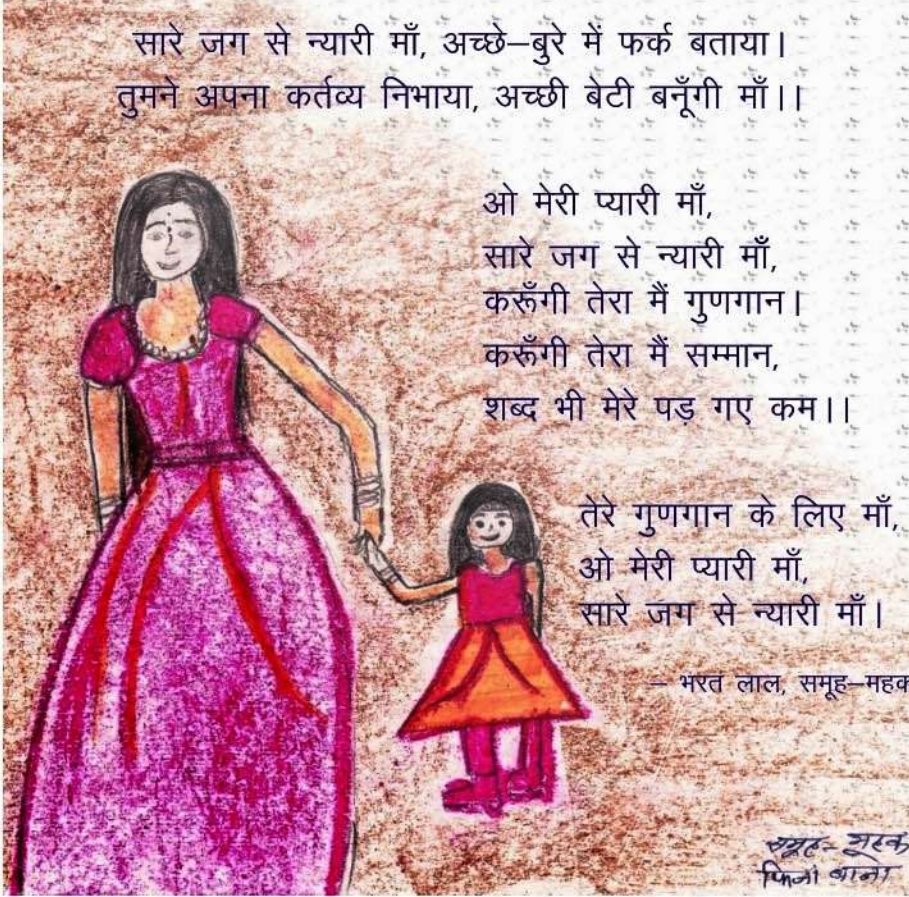 सारे जग से न्यारी माँ, अच्छे–बुरे में फर्क बताया।
तुमने अपना कर्तव्य निभाया, अच्छी बेटी बनूँगी माँ।।
ओ मेरी प्यारी माँ,
सारे जग से न्यारी माँ,
करूँगी तेरा मैं गुणगान।
करूँगी तेरा मैं सम्मान,
शब्द भी मेरे पड़ गए कम।।
तेरे गुणगान के लिए माँ,
ओ मेरी प्यारी माँ,
सारे जग से न्यारी माँ।
– भरत लाल, समूह–महक
समूह-